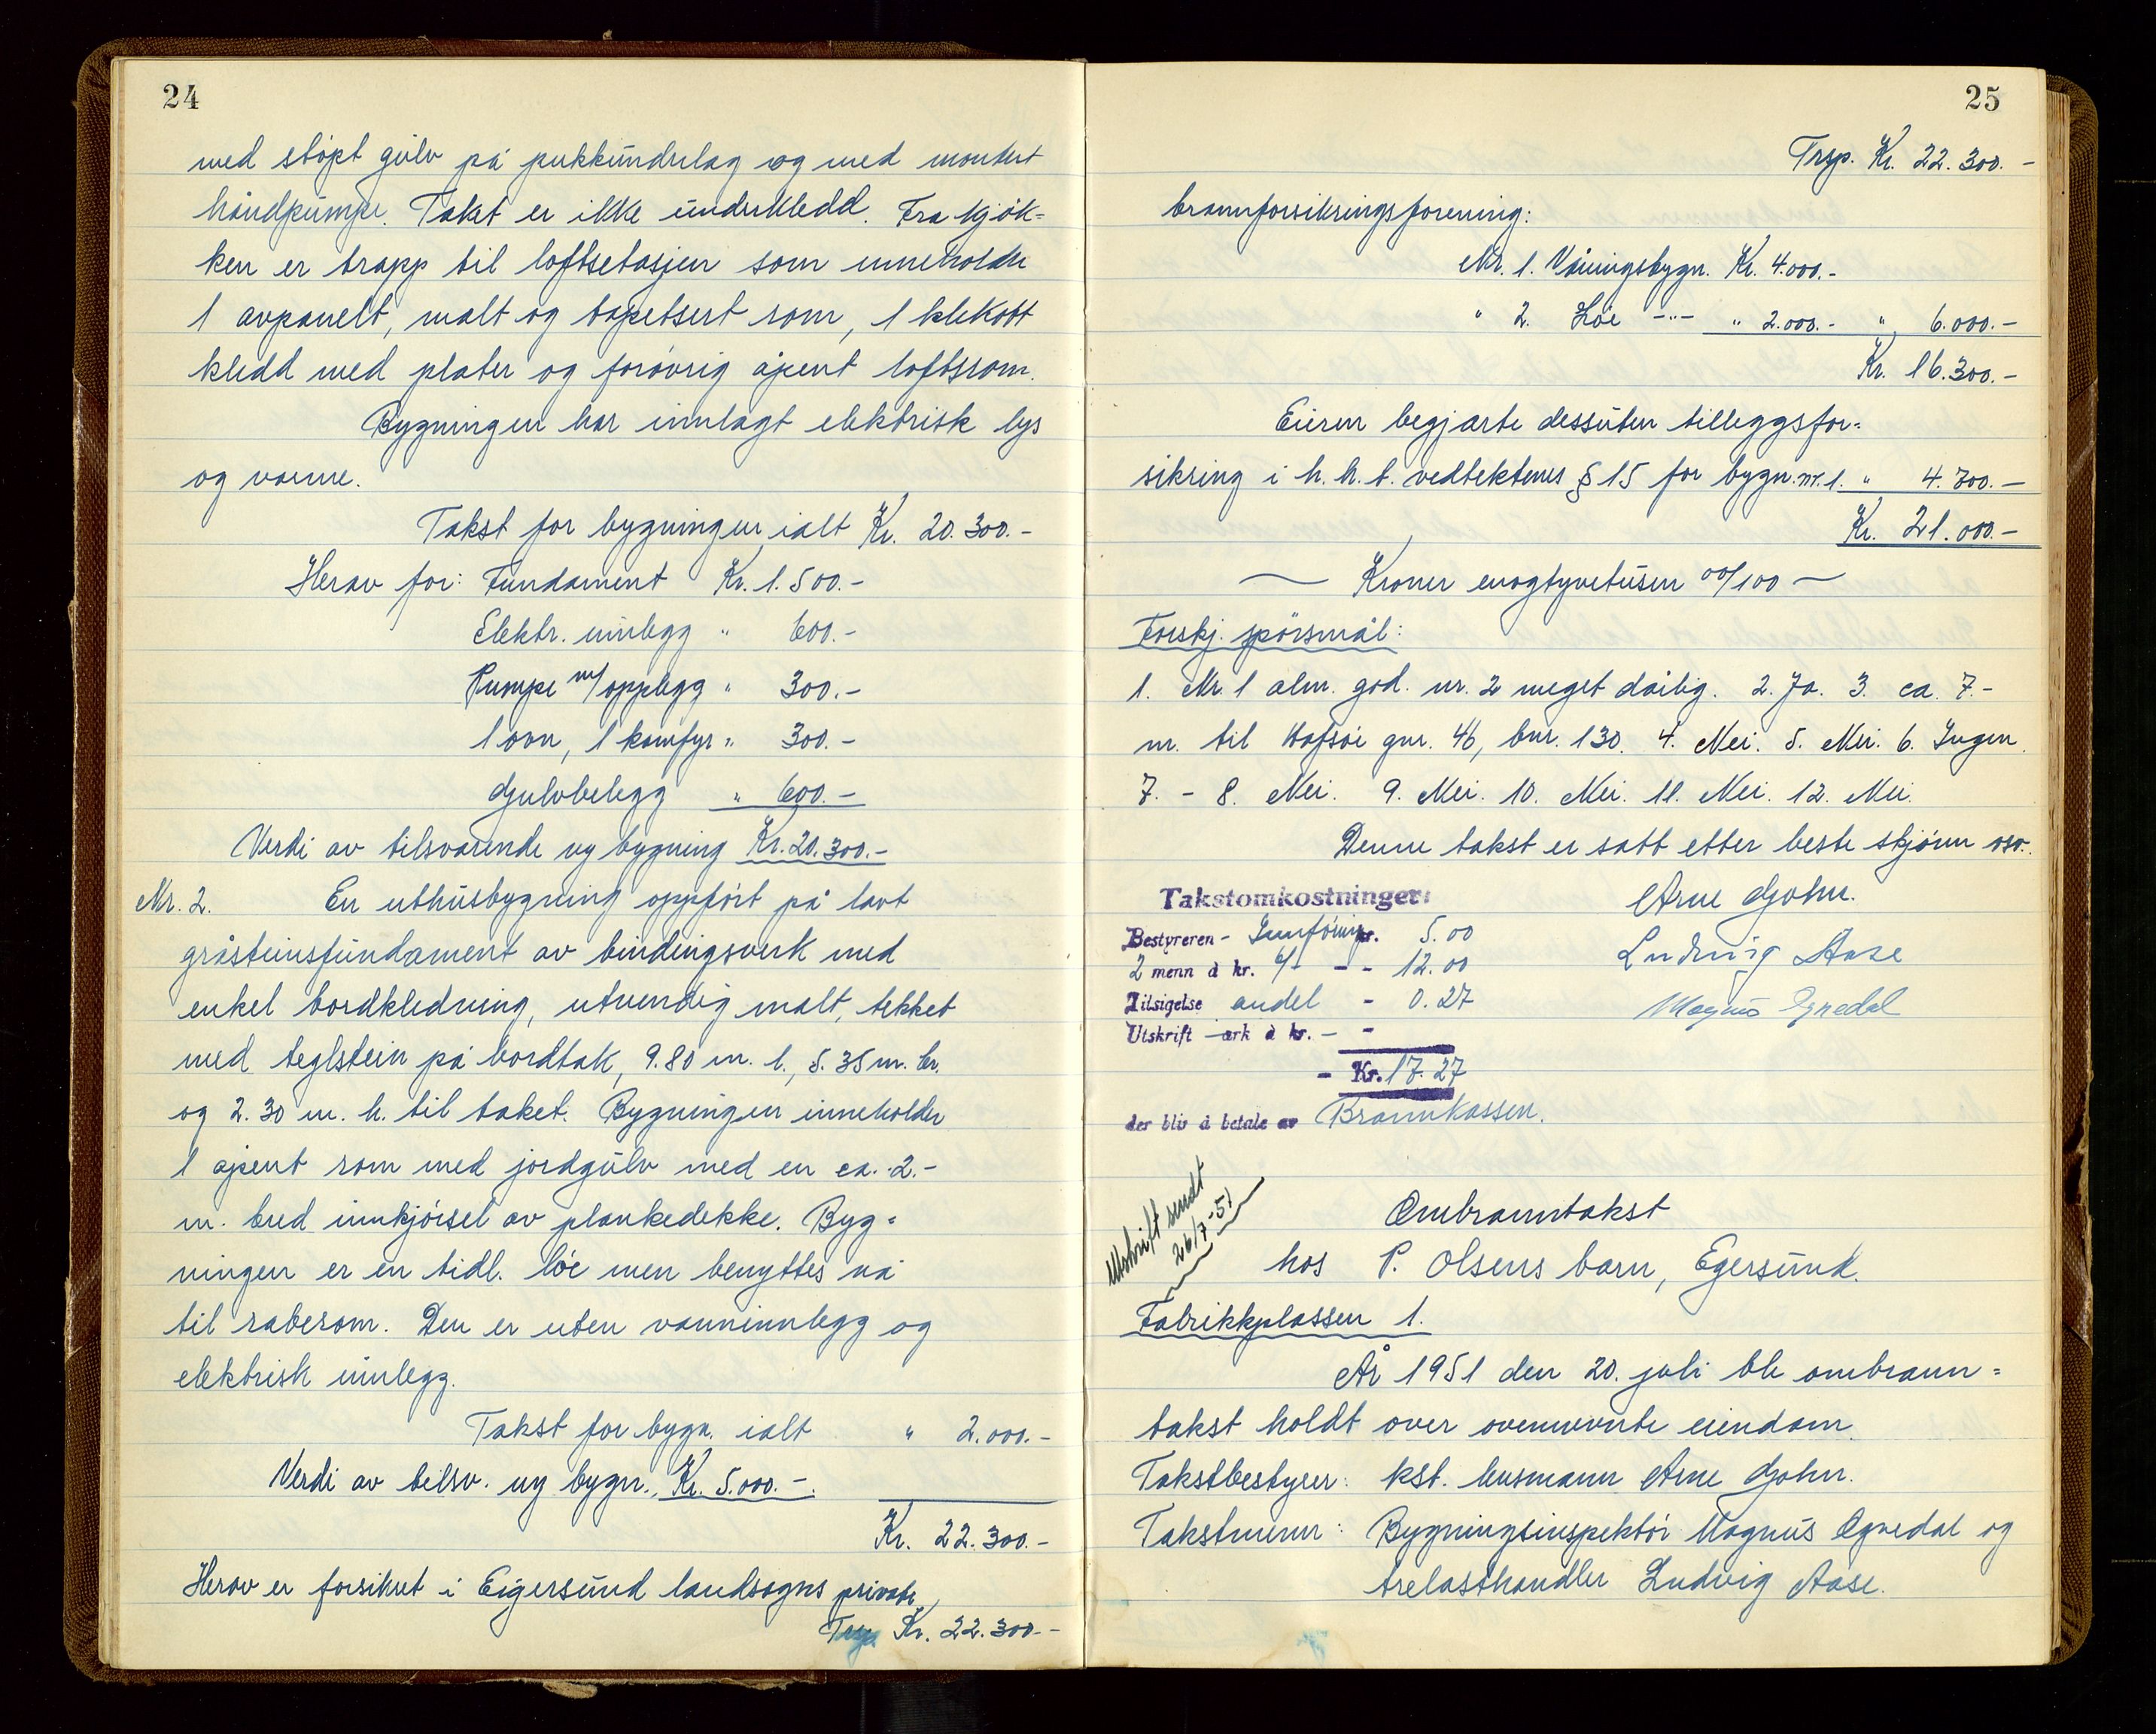 24
med støpt gulv på pukkunderlag og med montert
håndpumpe. Taket er ikke underkledd. Fra kjøk=
ken er trapp til loftsetasjen som inneholder
1 avpanelt, malt og tapetsert rom, 1 klekott
kledd med plater og forøvrig åpent loftsrom.
Bygningen har innlagt elektrisk lys
og varme.
Takst for bygningen ialt Kr. 20.300.-
Herav for: Fundament Kr. 1.500.-
Elektr. innlegg " 600.-
Pumpe m/opplegg " 300.-
1 ovn, 1 komfyr " 300.-
Gulvbelegg " 600.-
Verdi av tilsvarende ny bygning Kr. 20.300.-
Nr. 2. En uthusbygning oppført på lavt
gråsteinsfundament av bindingsverk med
enkel bordkledning, utvendig malt, tekket
med teglstein på bordtak, 9.80 m. l., 5.35 m. br.
og 2.30 m. h. til taket. Bygningen inneholder
1 åpent rom med jordgulv med en ca. 2.-
m. bred innkjørsel av plankedekke. Byg=
ningen er en tidl. løe men benyttes nå
til raberom. Den er uten vanninnlegg og
elektrisk innlegg.
Takst for bygn. ialt " 2.000.-
Verdi av tilsv. ny bygn. Kr. 5.000.-
Kr. 22.300.-
Herav er forsikret i Eigersund landsogns private
Trsp. Kr. 22.300.-
25
Trsp. Kr. 22.300.-
brannforsikringsforening:
Nr. 1. Våningsbygn. Kr. 4.000.-
" 2. Løe -"- " 2.000.- " 6.000.-
Kr. 16.300.-
Eieren begjærte dessuten tilleggsfor=
sikring i h. h. t. vedtektenes § 15 for bygn. nr. 1. " 4.700.-
Kr. 21.000.-
— Kroner enogtyvetusen 00/100 —
Forskj. spørsmål:
1. Nr. 1 alm. god. nr. 2 meget dårlig. 2. Ja. 3. ca. 7.-
m. til Hafsøe gnr. 46, bnr. 130. 4. Nei. 5. Nei. 6. Ingen.
7. - 8. Nei. 9. Nei. 10. Nei. 11. Nei. 12. Nei.
Denne takst er satt etter beste skjønn osv.
Takstomkostninger:
Arne Gjohn.
Bestyreren - Innføring kr. 5.00
Ludvig Aase
2 menn à kr. 6/- - - 12.00
Magnus Egnedal
Tilsigelse andel - 0.27
Utskrift - ark à kr. - -
- Kr. 17.27
der bliv å betale av Brannkassen.
Utskrift sendt
26/7-51
Ombranntakst
hos P. Olsens barn, Egersund.
Fabrikkplassen 1.
År 1951 den 20. juli ble ombrann=
takst holdt over ovennevnte eiendom.
Takstbestyrer: kst. lensmann Arne Gjohn.
Takstmenn: Bygningsinspektør Magnus Egnedal og
trelasthandler Ludvig Aase.